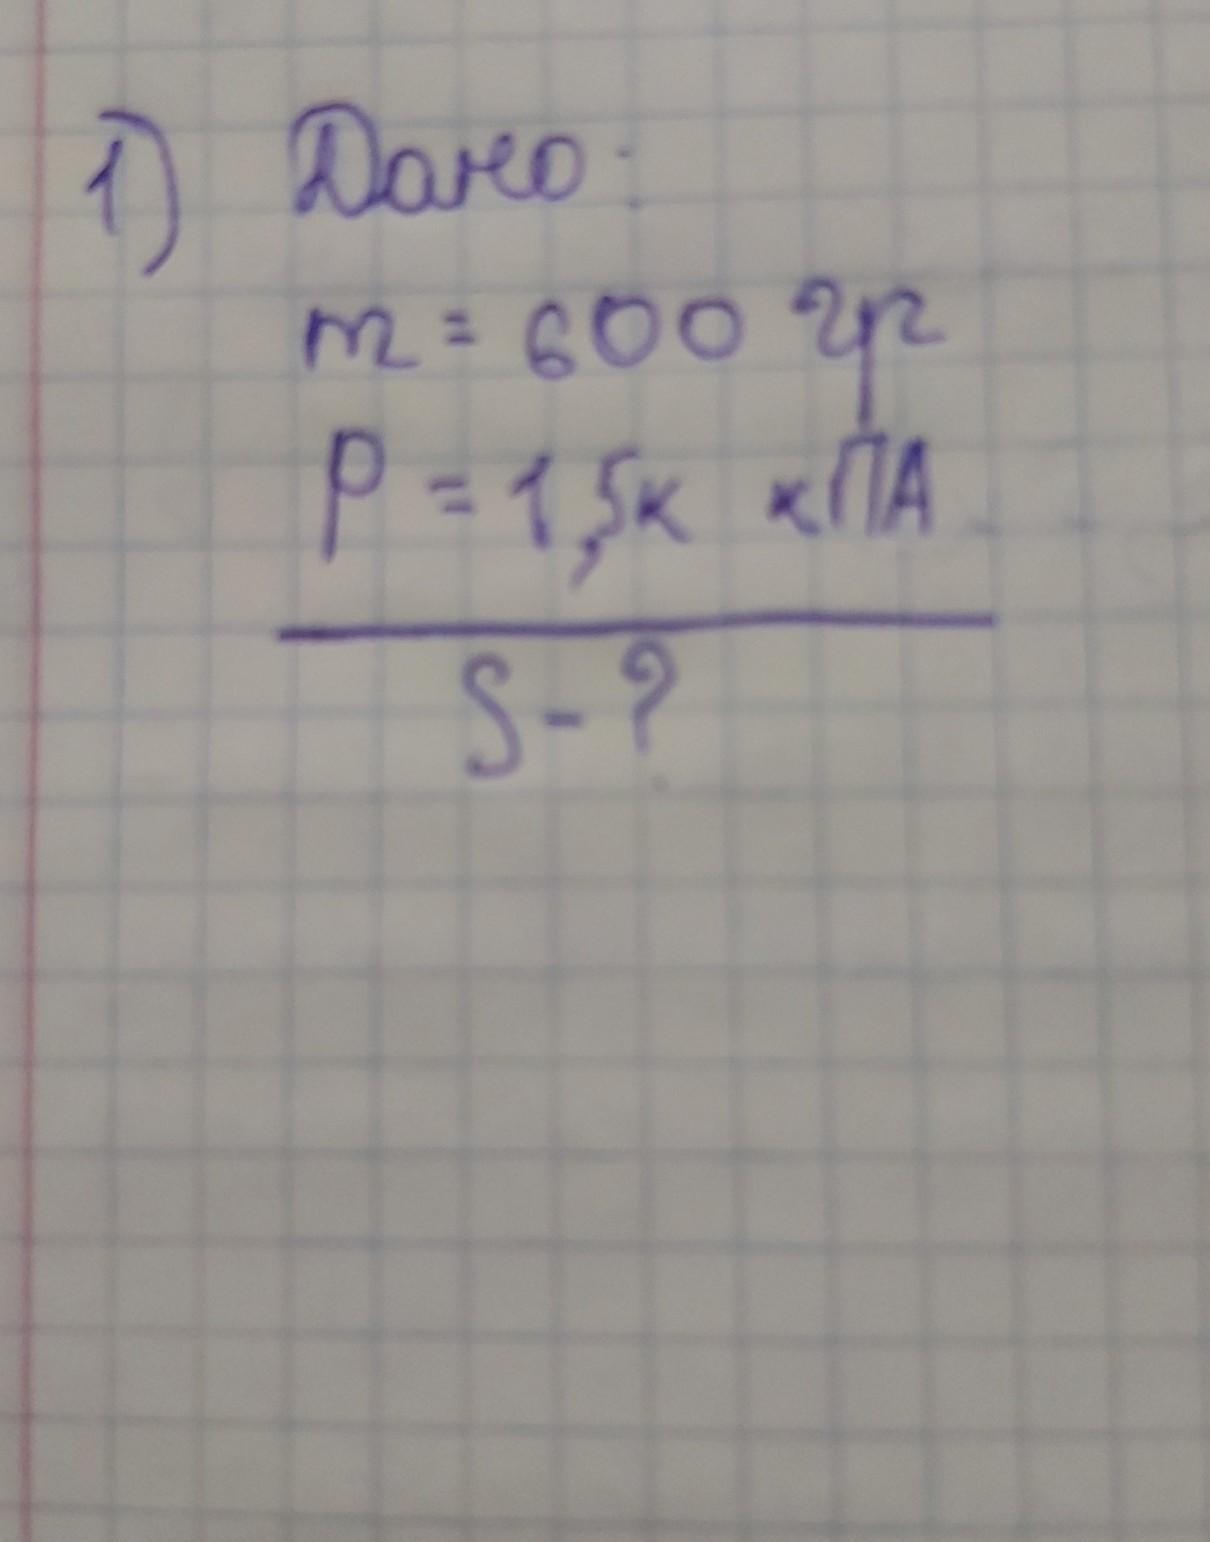 1) Дано:
m = 600 гр
P = 1,5к кПА
S - ?